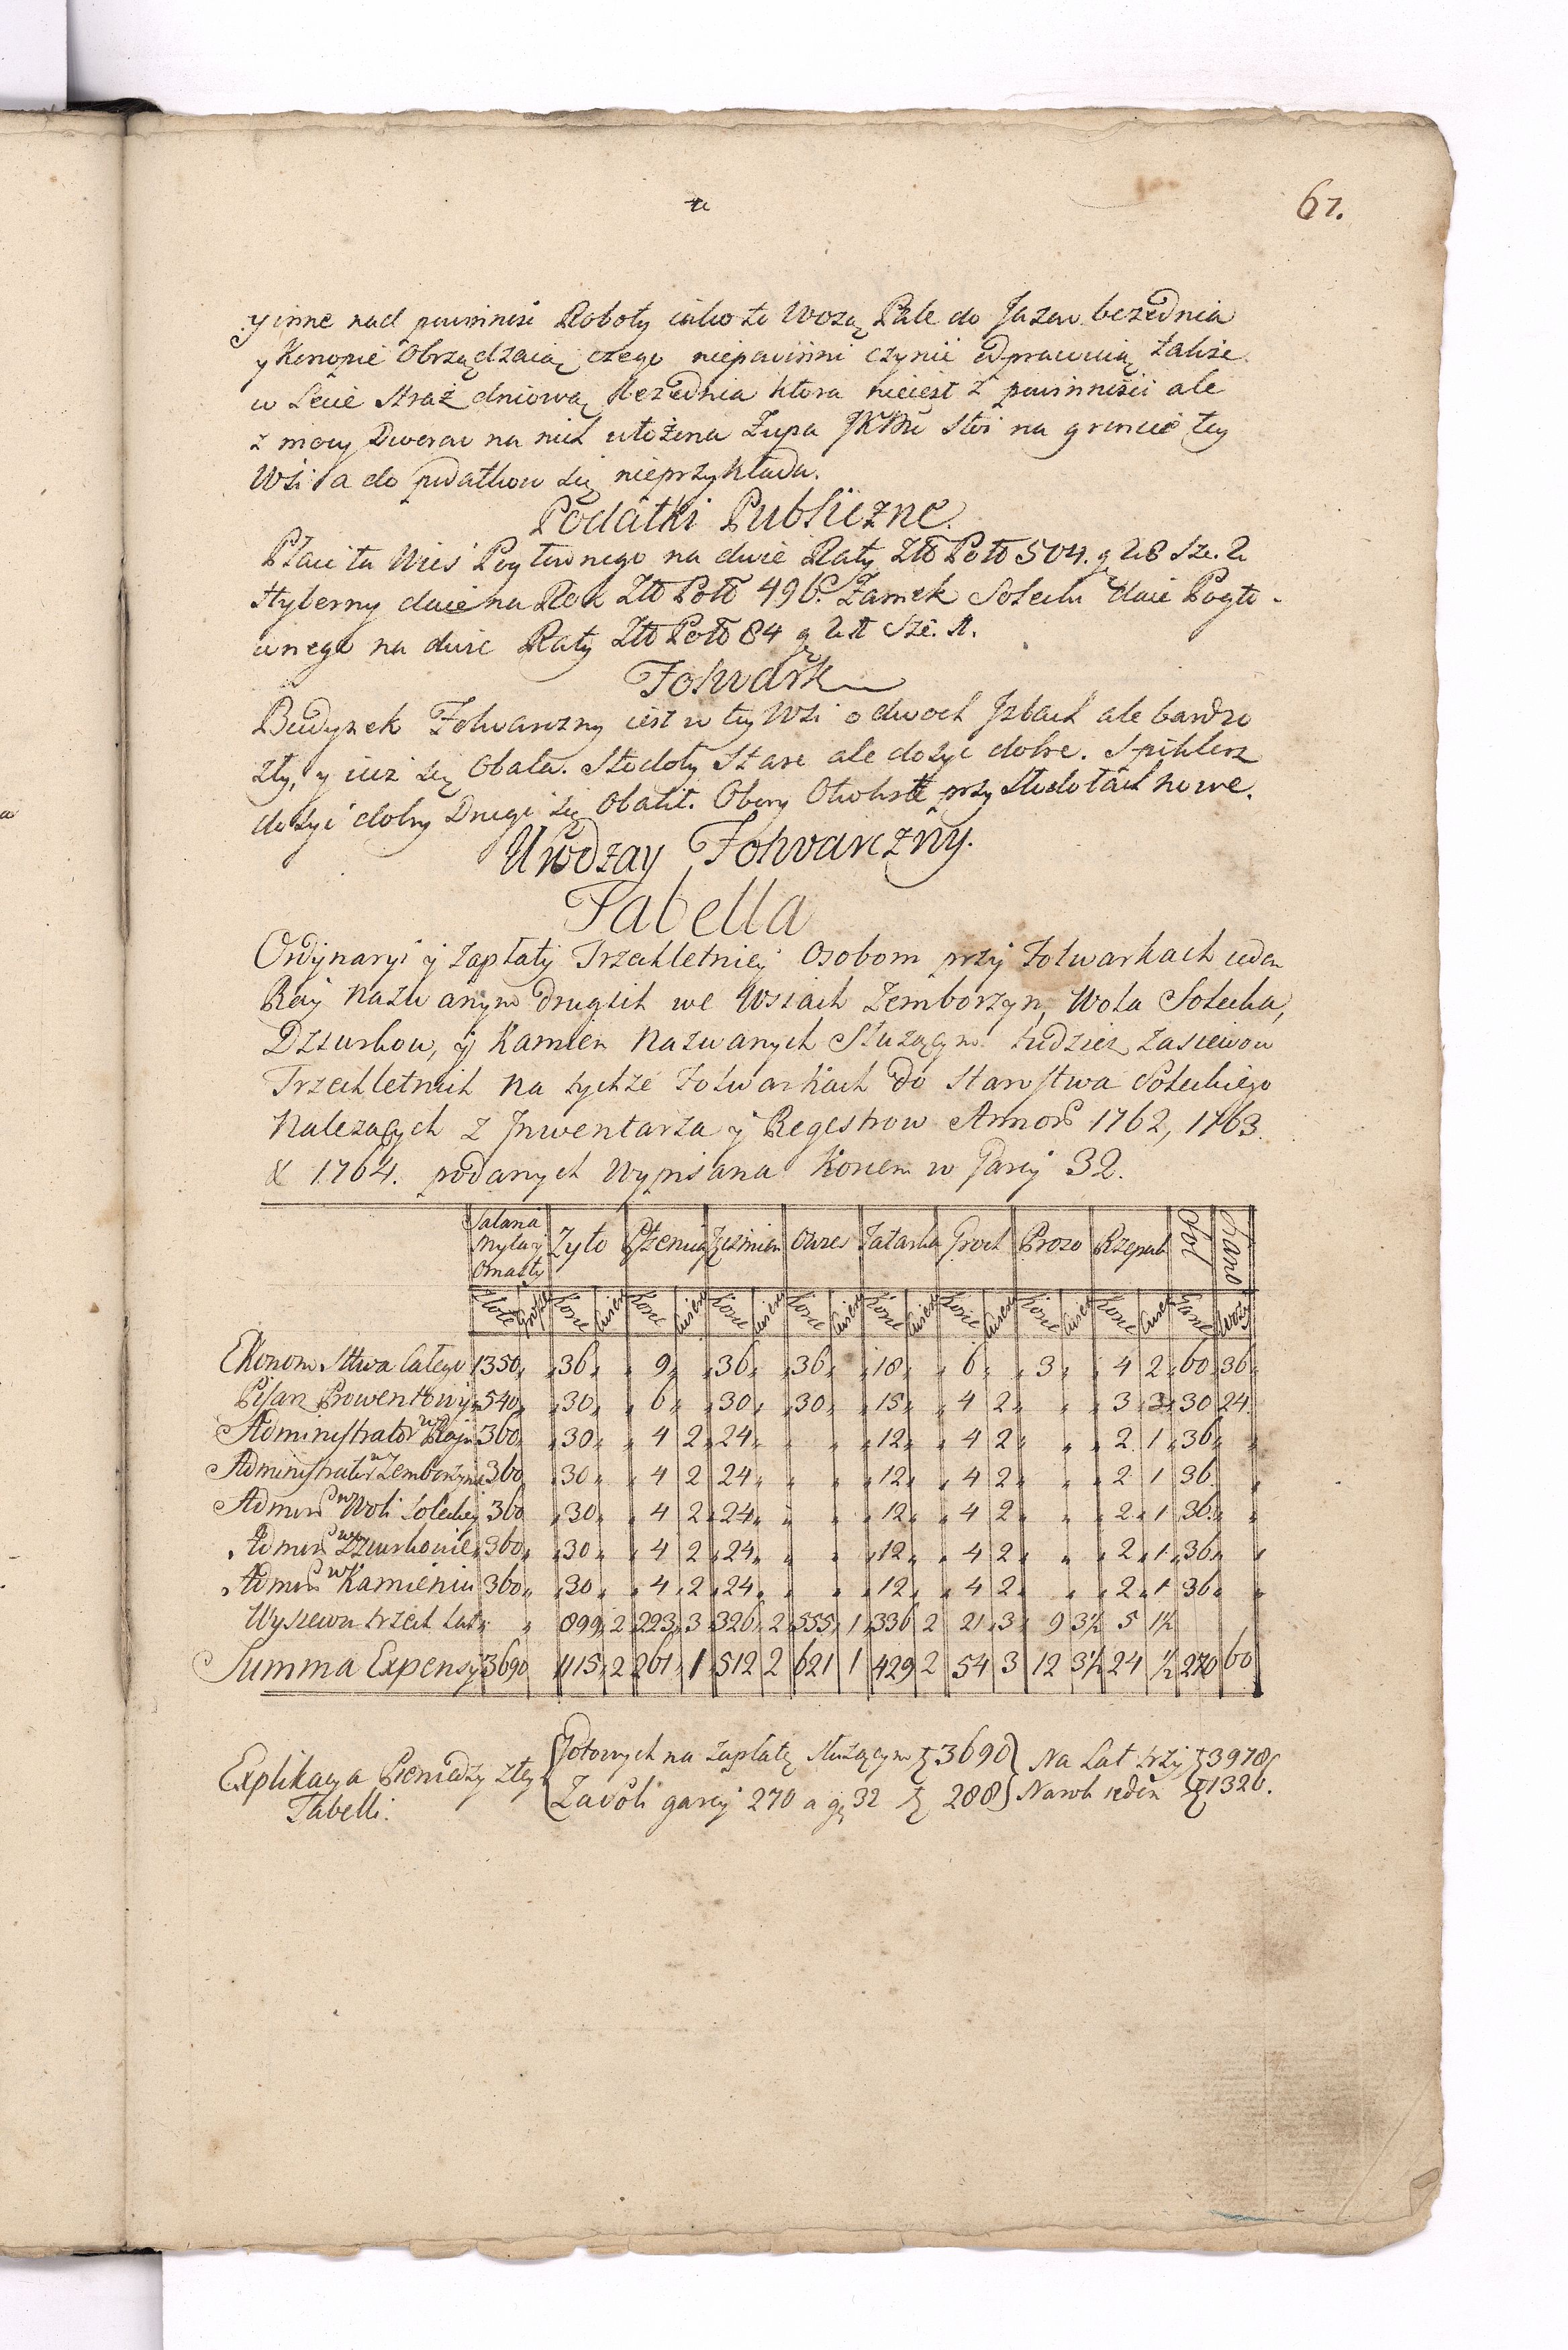 67.
y inne nad powinnosć Roboty iako to Wozą Pale do Jazow bezednia
y Konopie Obrządzaią czego niepowinni czynić odprawuią także
w Lecie Straż dniową bezednia ktora nieiest z powinności ale
z mocy Dworow na nich ułożona Żupa JKMci stoi na gruncie tey
Wsi a do podatkow się nieprzykłada.
Podatki Publiczne.
Płaci ta Wieś Pogłownego na dwie Raty Złł Poll 504. g 28 Sze. 2
Hyberny daie na Rok Złł Poll 496. Zamek Solecki daie Pogło-
wnego na dwie Raty Złł Poll 84 g 21 Sze. 1.
Folwark
Budynek Folwarczny iest w tey Wsi o dwoch Jzbach ale bardzo
zły, y iuż się Obala. Stodoły Stare ale dosyć dobre. Spiklerz
dosyć dobry Drugi się Obalił. Obory Okolne przy Stodołach nowe.
Urodzay Folwarczny.
Tabella
Ordynaryi y zapłaty Trzechletniey Osobom przy Folwarkach ieden
Ray Nazwanym drugich we Wsiach Zemborzyn, Wola Solecka,
Dziurkow, y Kamien Nazwanych Służącym tudziez zasiewow
Trzechletnich na tychże Folwarkach do Starostwa Soleckiego
Należących z Jnwentarza y Regestrow Annor 1762, 1763.
& 1764. podanych Wypisana Korzem w Garcy 32.
Salaria Mylary Omasty Zyto Pszenica Jęczmien Owies Tatarka Groch Proso Rzepak Sol Siano
Złote Grosze Korce Cwierci Korce Cwierci Korce Cwierci Korce Cwierci Korce Cwierci Korce Cwierci Korce Cwierci Korce Cwierci Garce Wozy
Ekonom Sttwa Całego 1350 36 9 36 36 18 6 3 4 2 60 36
Pisarz Prowentowy 540 30 6 30 30 15 4 2 3 3 30 24
Administrator w Raju 360 30 4 2 24 12 4 2 2 1 36
Administrator w Zemborzynie 360 30 4 2 24 12 4 2 2 1 36
Admin w Woli Soleckiey 360 30 4 2 24 12 4 2 2 1 36
Admin w Dziurkowie 360 30 4 2 24 12 4 2 2 1 36
Admin w Kamieniu 360 30 4 2 24 12 4 2 2 1 36
Wysiewu trzech Lat 899 2 223 3 326 2 555 1 336 2 21 3 9 3½ 5 1½
Summa Expensy 3690 1115 2 261 1 512 2 621 1 429 2 54 3 12 3½ 24 ½ 270 60
Gotowych na zapłatę służącym zł 3690 Na Lat trzy zł 3978
Explikacya Pieniędzy z tey
Za Sol garcy 270 a gr 32 zł 288 Na rok ieden zł 1326.
Tabelli.